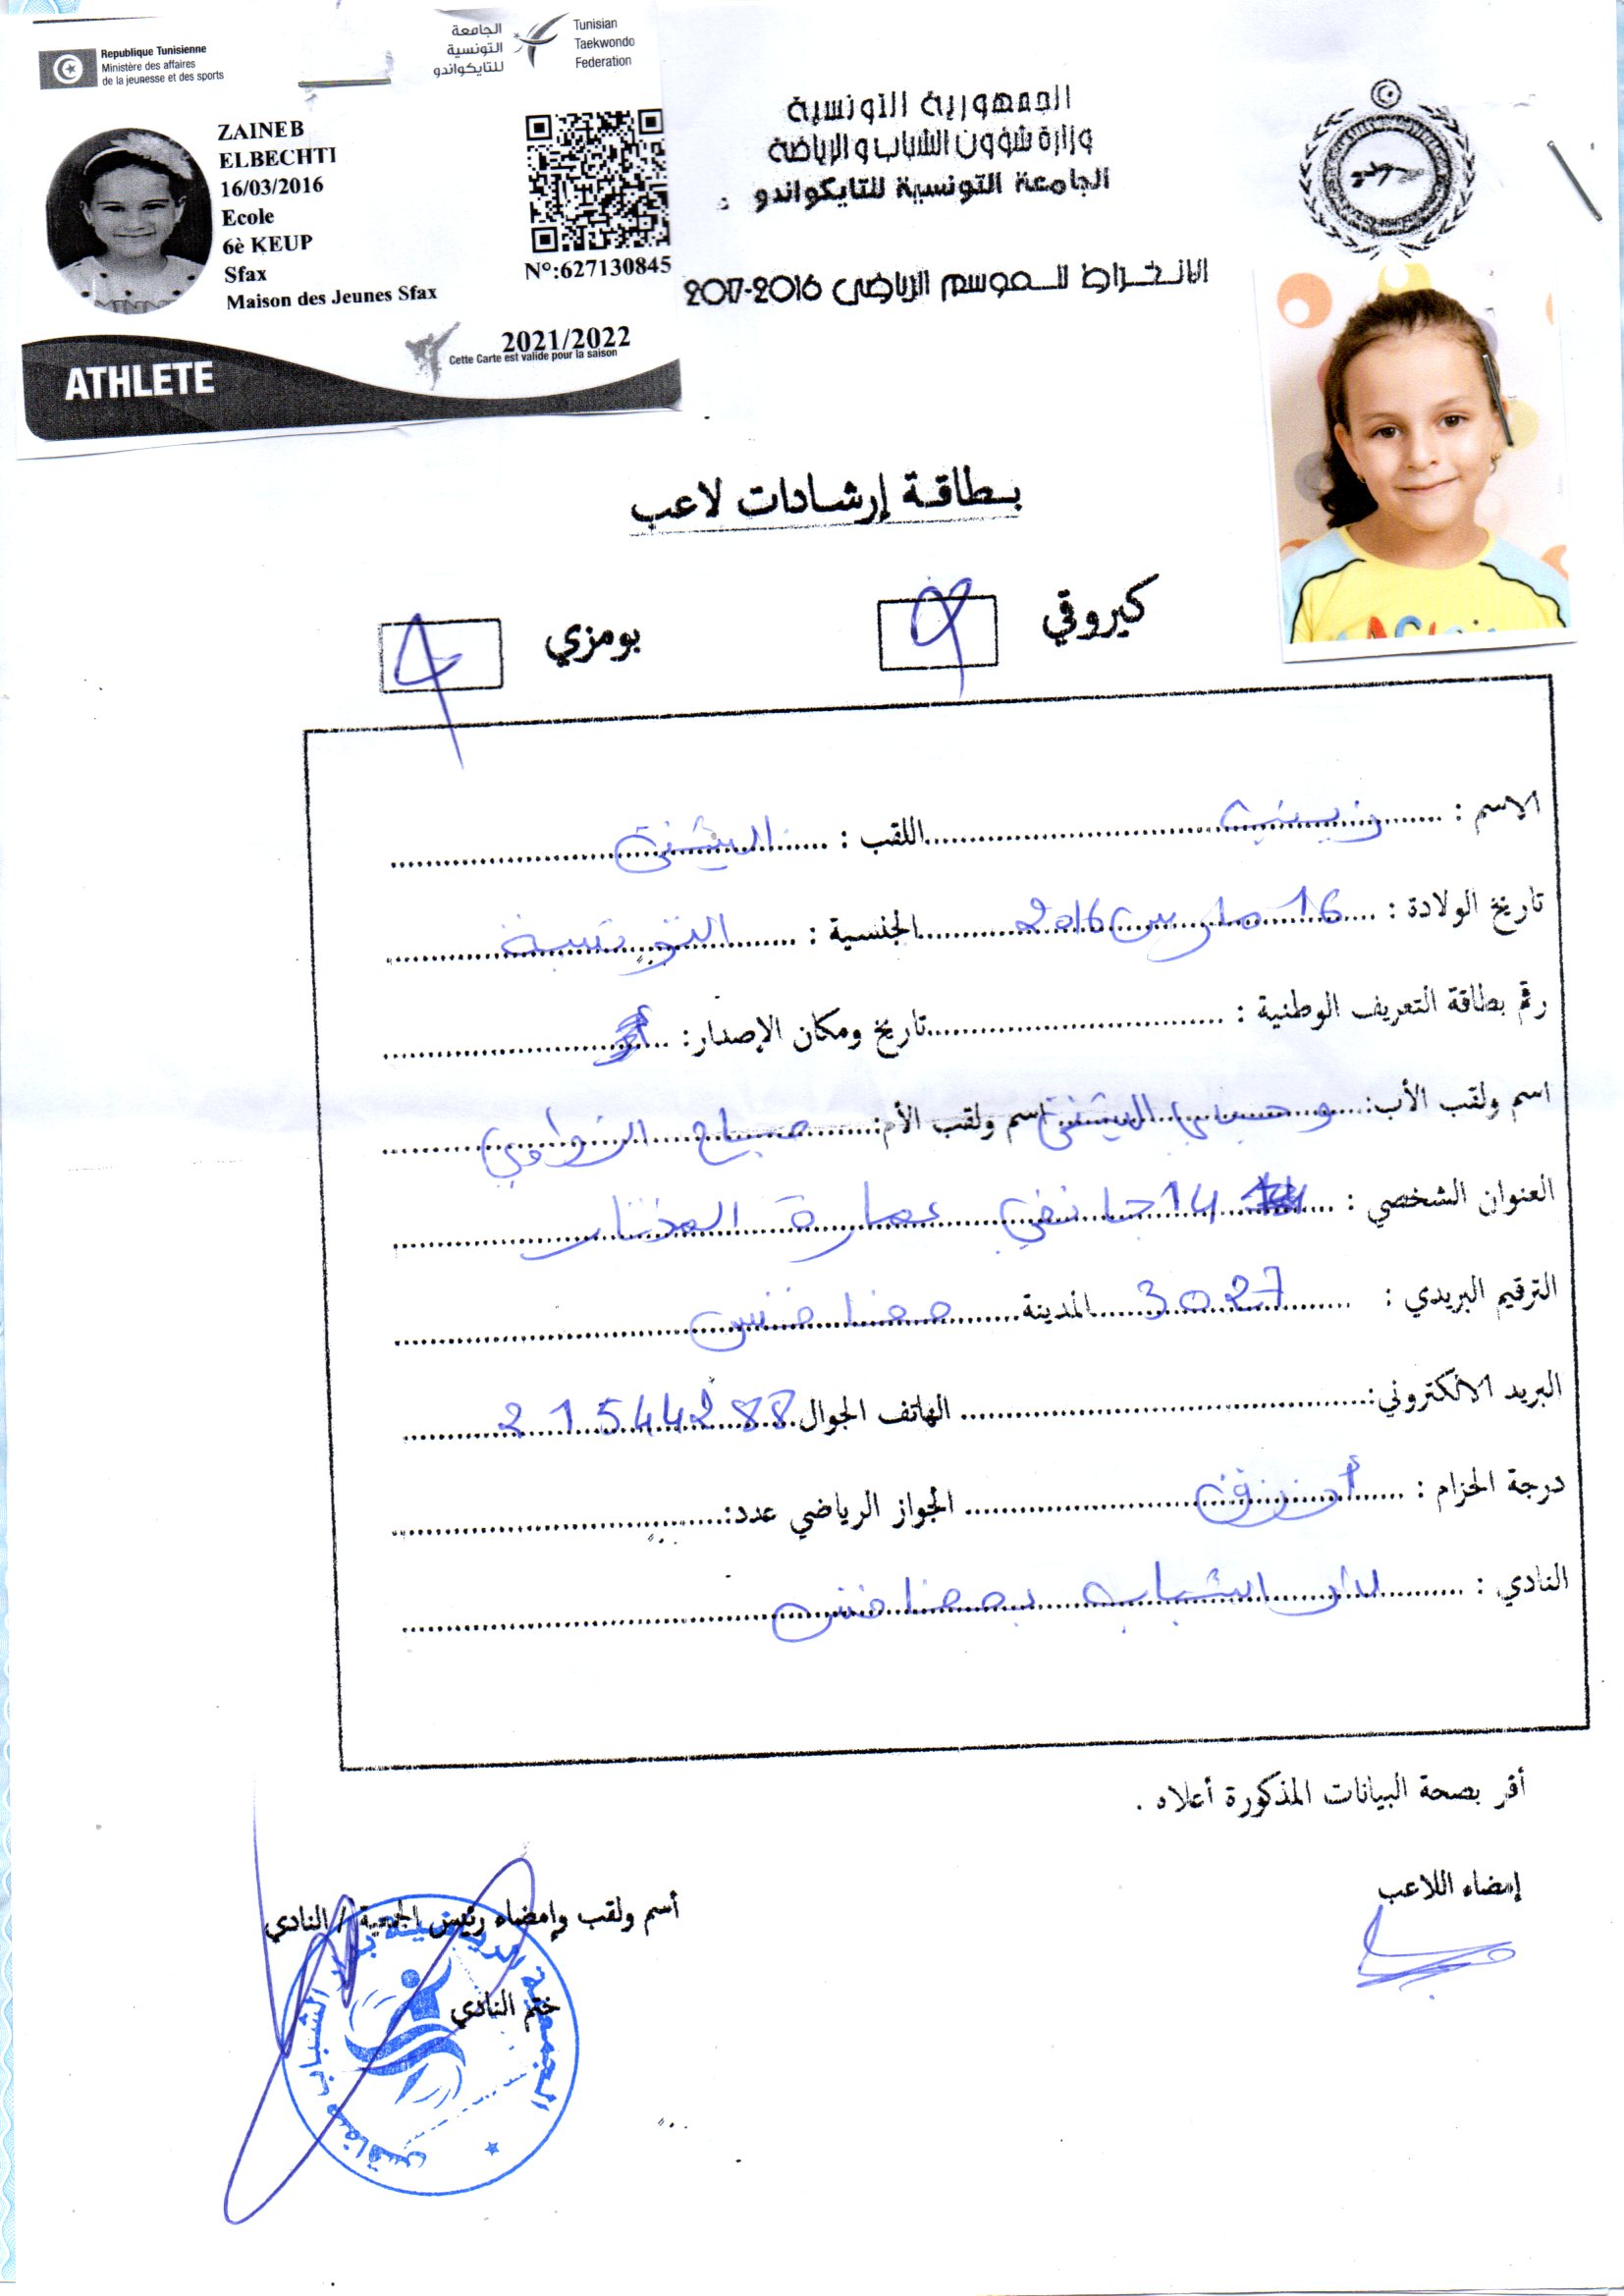 Republique Tunisienne
Ministère des affaires
de la jeunesse et des sports
الجامعة
التونسية
للتايكواندو
Tunisian
Taekwondo
Federation
ZAINEB
ELBECHTI
16/03/2016
Ecole
6è KEUP
Sfax
Maison des Jeunes Sfax
N°:627130845
2021/2022
Cette Carte est valide pour la saison
ATHLETE
الجمهورية التونسية
وزارة شؤون الشباب والرياضة
الجامعة التونسية للتايكواندو
الانخراط للموسم الرياضي 2016-2017
بطاقة إرشادات لاعب
كيروقي
بومزي
الاسم : زينب اللقب : البشتي
تاريخ الولادة : 16 مارس 2016 الجنسية : التونسية
رقم بطاقة التعريف الوطنية : تاريخ ومكان الإصدار:
اسم ولقب الأب: البشتي اسم ولقب الأم: صباح الزواري
العنوان الشخصي : 14 جانفي عمارة المختار
الترقيم البريدي : 3027 المدينة صفاقس
البريد الالكتروني: الهاتف الجوال 21544288
درجة الحزام : أزرق الجواز الرياضي عدد:
النادي : دار الشباب بصفاقس
أقر بصحة البيانات المذكورة أعلاه .
إمضاء اللاعب
أسم ولقب وإمضاء رئيس الجمعية / النادي
ختم النادي
الجمعية الرياضية بدار الشباب صفاقس